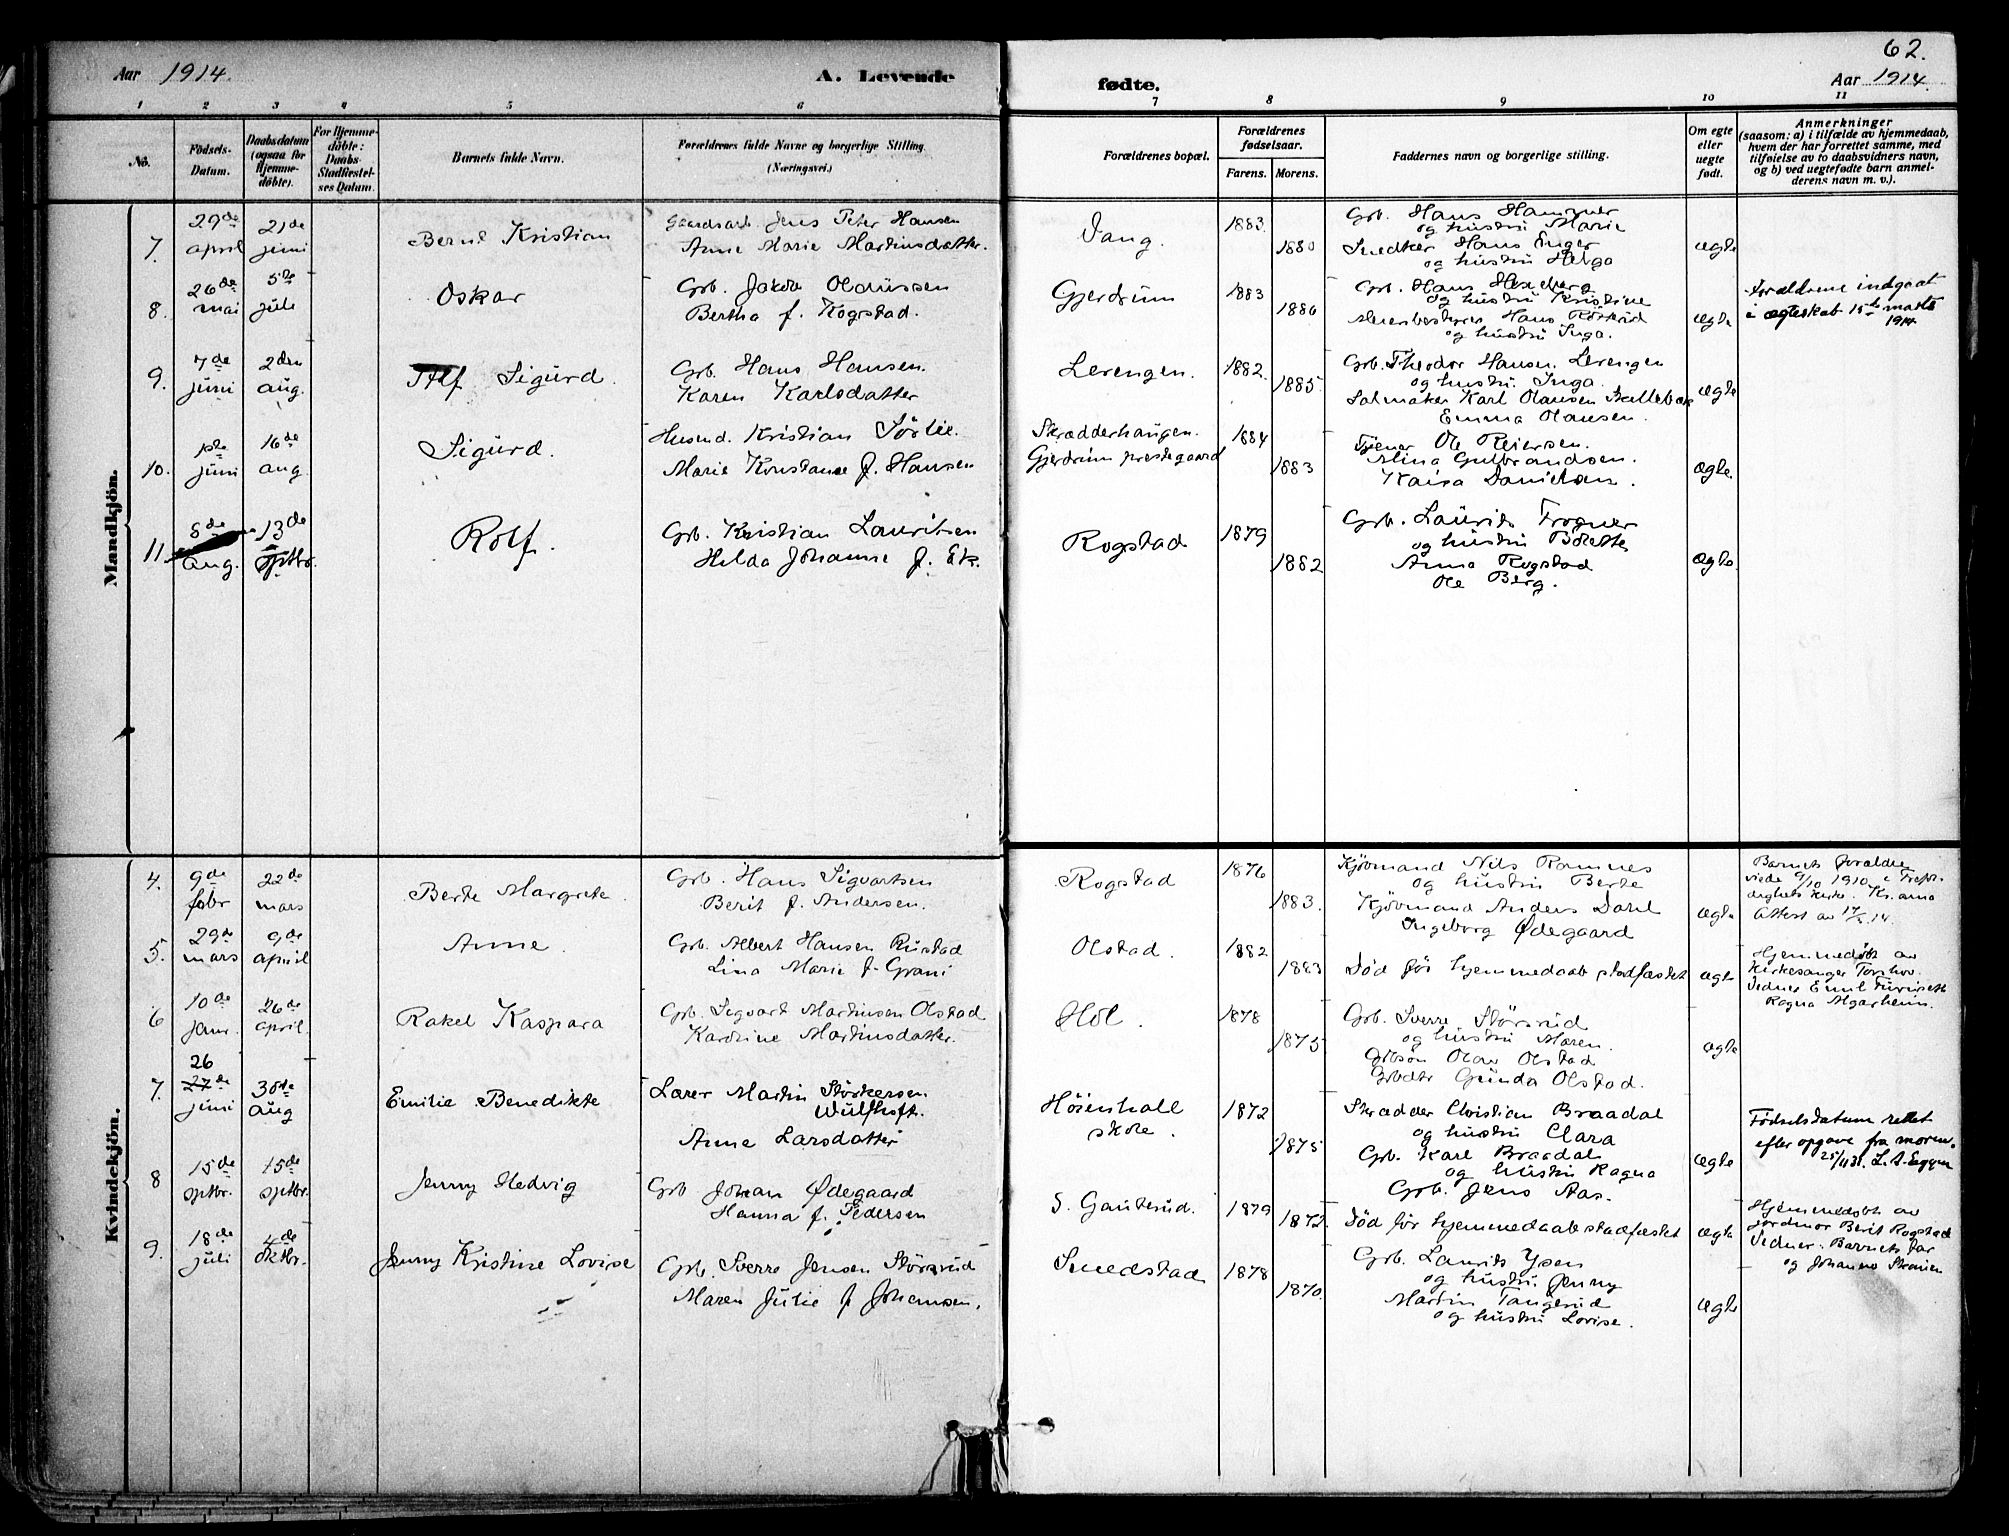 62.
Aar 1914.
A. Levende
fødte.
Aar 1914.
1 2 3 4 5 6 7 8 9 10 11
No.
Fødsels-
Datum.
Daabsdatum
(ogsaa for
Hjemme-
døbte).
For Hjemme-
døbte:
Daabs-
Stadfæstel-
ses Datum.
Barnets fulde Navn.
Forældrenes fulde Navne og borgerlige Stilling.
(Næringsvei.)
Forældrenes bopæl.
Forældrenes
fødselsaar.
Farens. Morens.
Faddernes navn og borgerlige stilling.
Om egte
eller
uegte
født.
Anmerkninger
(saasom: a) i tilfælde av hjemmedaab,
hvem der har forrettet samme, med
tilføielse av to daabsvidners navn,
og b) ved uegtefødte barn anmel-
derens navn m. v.).
Mandkjön.
7. 29de april 21de juni
Bernt Kristian
Gaardsarb. Jens Peter Hansen
Anne Marie Martinsdatter.
Vang.
1883. 1880
Grb. Hans Hammer
og hustru Marie
Snedker Hans Enger
og hustru Helga
ægte
8. 26de mai 5te juli
Oskar
Grb. Jakob Olaussen
Bertha f. Rogstad.
Gjerdrum
1883 1886
Grb. Hans Hexeberg
og hustru Kristine
Hans
og hustru Inga.
ægte
Forældrene indgaat
i ægteskab 15de marts
1914
9. 7de juni 2den aug.
Alf Sigurd.
Grb. Hans Hansen.
Karen Karlsdatter
Lerengen.
1882. 1885.
Grb. Theodor Hansen Lerengen
og hustru Inga.
Salmaker Karl Olausen
Emma Olausen.
ægte
10. 1ste juni 16de aug.
Sigurd.
Husmd. Kristian Sørlie.
Marie Konstance f. Hansen
Skrædderhaugen.
Gjerdrum prestegaard
1884 1883
Tjener Ole Reiersen.
Alina Gulbrandsen.
Kaisa Danielsen.
ægte.
11. 8de aug. 13de sptbr.
Rolf.
Grb. Kristian Lauritsen
Hilda Johanne f. Ek.
Rogstad
1879 1882
Grb. Laurits Frogner
og hustru Bolette
Anna Rogstad
Ole Berg.
ægte
Kvindekjön.
4. 9de febr 22de mars
Berte Margrete
Grb. Hans Sigvartsen
Berit f. Andersen.
Rogstad
1876 1883.
Kjøbmand Nils Ramnes
og hustru Berte
Kjøbmand Anders Dahl
Ingeborg Ødegaard
ægte
Barnets forældre
viede 9/10 1910 i Trefol-
dighets kirke. Kr.ania
Attest av 14.
5. 29de mars 9de april
Anne.
Grb. Albert Hansen Rustad
Lina Marie f. Grani
Olstad.
1882 1883
Død før hjemmedaab stadfæstet
ægte
Hjemmedøbt av
Kirkesanger Torshov.
Vidner Emil Furuseth
Ragna Algarheim.
6 10de janr. 26de april.
Rakel Kaspara
Grb. Sigvart Martinsen Olstad
Karoline Martinsdatter.
Hol.
1878 1875
Grb. Sverre Størsrud
og hustru Maren.
Grbsøn Olav Olstad
Grbdtr Gunda Olstad.
ægte
7. 26 27de juni 30te aug
Emilie Benedikte
Lærer Martin Størkersen
Wulfhoft.
Anne Larsdatter
Høienhall
skole.
1872 1875
Skrædder Christian Braadal
og hustru Clara
Grb. Karl Braadal
og hustru Ragna
Grb. Jens Aas.
ægte
Fødselsdatum rettet
efter opgave fra moren.
25/11 31. L. A. Eggen
8 15de sptbr. 15de sptbr.
Jenny Hedvig
Grb Johan Ødegaard
Hanna f. Pedersen
S. Gauterud.
1879 1872.
Død før hjemmedaab stadfæstet
ægte
Hjemmedøbt av
jordmor Berit Rogstad
Vidner: Barnets far
og Johanne
9. 18de juli 4de oktbr.
Jenny Kristine Lovise
Grb. Sverre Jensen Størsrud
Maren Julie f Johansen.
Smedstad
1878 1870.
Grb. Laurits Ysen
og hustru Jenny
Martin Tangerud
og hustru Lovise.
ægte